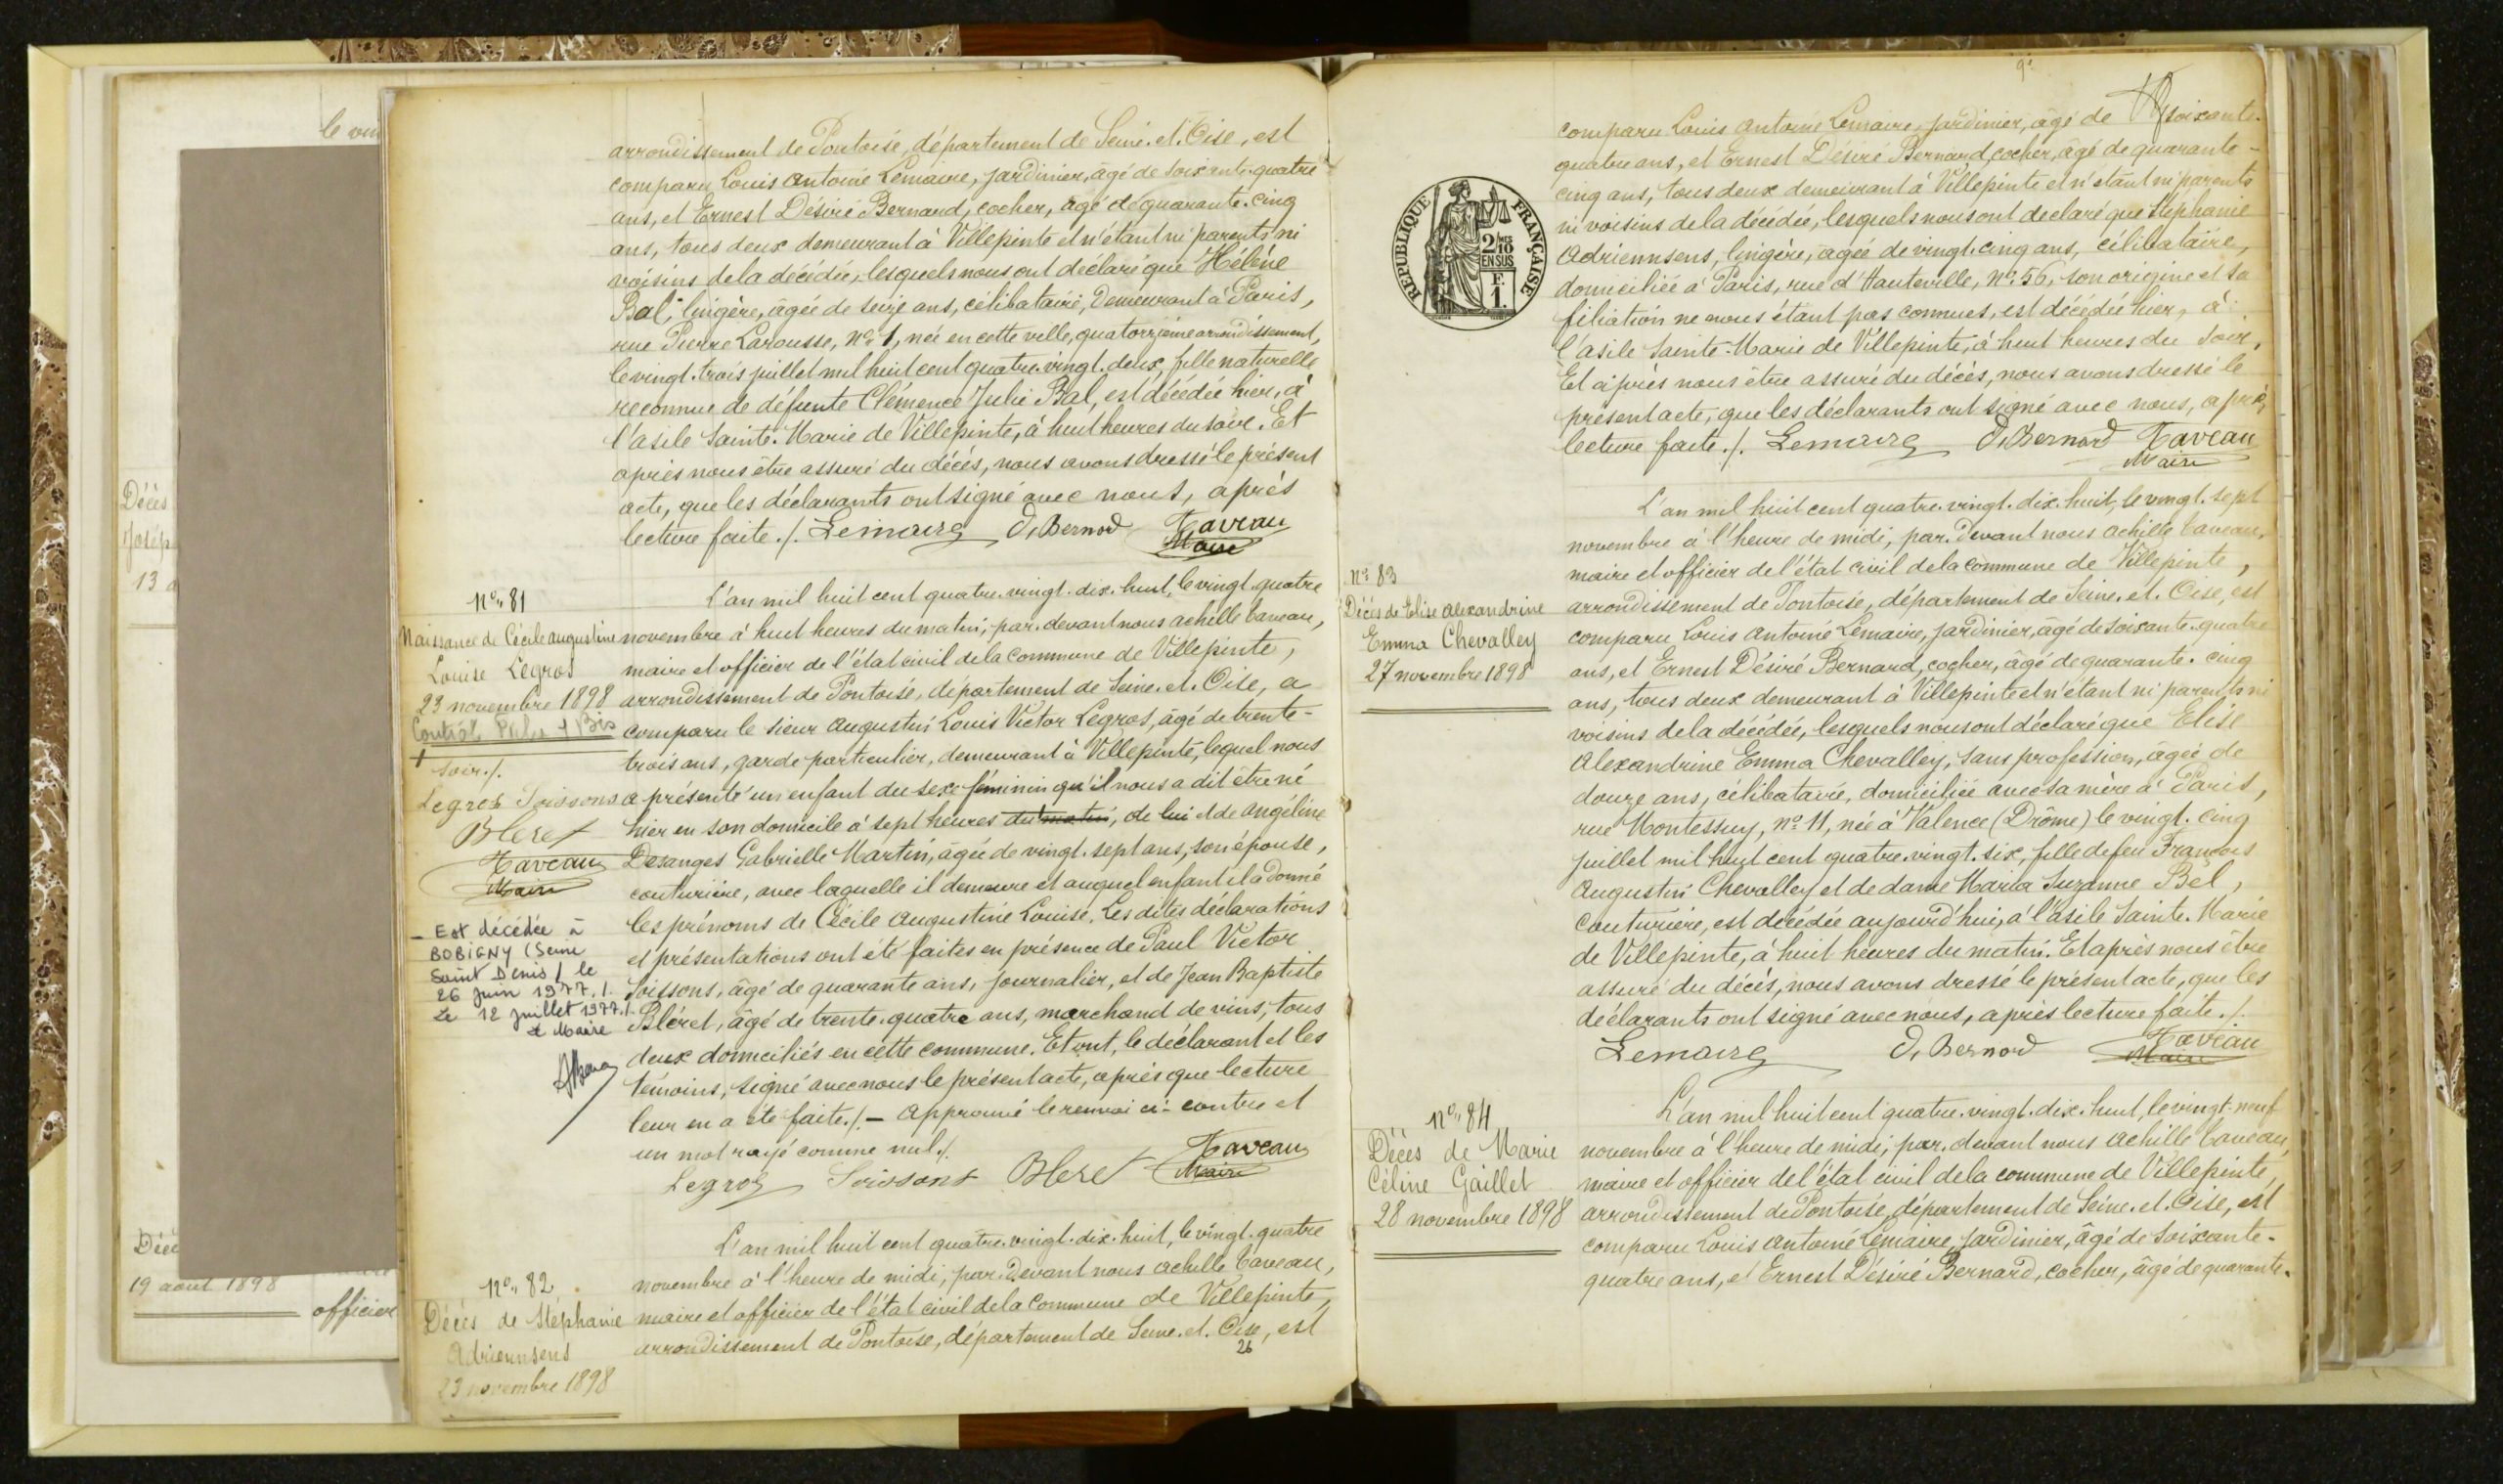 le vin
Décès
Josép
13 a
Déc
19 août 1898
officier
arrondissement de Pontoise, département de Seine-et-Oise, est
comparu Louis Antoine Lemaire, jardinier, âgé de soixante-quatre
ans, et Ernest Désiré Bernard, cocher, âgé de quarante-cinq
ans, tous deux demeurant à Villepinte et n'étant ni parents ni
voisins de la décédée, lesquels nous ont déclaré que Hélène
Bal, lingère, âgée de seize ans, célibataire, demeurant à Paris,
rue Pierre Larousse, No 1, née en cette ville, quatorzième arrondissement,
le vingt-trois juillet mil huit cent quatre-vingt-deux, fille naturelle
reconnue de défunte Clémence Julie Bal, est décédée hier, à
l'asile Sainte-Marie de Villepinte, à huit heures du soir. Et
après nous être assuré du décès, nous avons dressé le présent
acte, que les déclarants ont signé avec nous, après
lecture faite ./. Lemaire D. Bernard Taveau
Maire
No 81
Naissance de Cécile Augustine
Louise Legros
23 novembre 1898
+
soir ./.
Legros Soissons
Bleret
Taveau
Maire
- Est décédée à
BOBIGNY (Seine
Saint Denis) le
26 juin 1977. /.
Le 12 juillet 1977. /.
Le Maire
L'an mil huit cent quatre-vingt-dix-huit, le vingt-quatre
novembre à huit heures du matin, par-devant nous Achille Taveau,
maire et officier de l'état civil de la commune de Villepinte,
arrondissement de Pontoise, département de Seine-et-Oise, a
comparu le sieur Augustin Louis Victor Legros, âgé de trente-
trois ans, garde particulier, demeurant à Villepinte, lequel nous
a présenté un enfant du sexe féminin qu'il nous a dit être né
hier en son domicile à sept heures du matin, de lui et de Angéline
Desanges Gabrielle Martin, âgée de vingt-sept ans, son épouse,
couturière, avec laquelle il demeure et auquel enfant il a donné
les prénoms de Cécile Augustine Louise. Les dites déclarations
et présentations ont été faites en présence de Paul Victor
Soissons, âgé de quarante ans, journalier, et de Jean Baptiste
Bléret, âgé de trente-quatre ans, marchand de vins, tous
deux domiciliés en cette commune. Et ont, le déclarant et les
témoins, signé avec nous le présent acte, après que lecture
leur en a été faite ./. - Approuvé le renvoi ci-contre et
un mot rayé comme nul ./.
Legros Soissons Bleret Taveau
Maire
No 82
Décès de Stéphanie
Adriennsens
23 novembre 1898
L'an mil huit cent quatre-vingt-dix-huit, le vingt-quatre
novembre à l'heure de midi, par-devant nous Achille Taveau,
maire et officier de l'état civil de la commune de Villepinte,
arrondissement de Pontoise, département de Seine-et-Oise, est
26
RÉPUBLIQUE FRANÇAISE
2/10
EN SUS
F.
1.
comparu Louis Antoine Lemaire, jardinier, âgé de soixante-
quatre ans, et Ernest Désiré Bernard, cocher, âgé de quarante-
cinq ans, tous deux demeurant à Villepinte et n'étant ni parents
ni voisins de la décédée, lesquels nous ont déclaré que Stéphanie
Adriennsens, lingère, âgée de vingt-cinq ans, célibataire,
domiciliée à Paris, rue d'Hauteville, No 56, son origine et sa
filiation ne nous étant pas connues, est décédée hier, à
l'asile Sainte-Marie de Villepinte, à huit heures du soir,
Et après nous être assuré du décès, nous avons dressé le
présent acte, que les déclarants ont signé avec nous, après
lecture faite ./. Lemaire D. Bernard Taveau
Maire
No 83
Décès de Elise Alexandrine
Emma Chevalley
27 novembre 1898
L'an mil huit cent quatre-vingt-dix-huit, le vingt-sept
novembre à l'heure de midi, par-devant nous Achille Taveau,
maire et officier de l'état civil de la commune de Villepinte,
arrondissement de Pontoise, département de Seine-et-Oise, est
comparu Louis Antoine Lemaire, jardinier, âgé de soixante-quatre
ans, et Ernest Désiré Bernard, cocher, âgé de quarante-cinq
ans, tous deux demeurant à Villepinte et n'étant ni parents ni
voisins de la décédée, lesquels nous ont déclaré que Elise
Alexandrine Emma Chevalley, sans profession, âgée de
douze ans, célibataire, domiciliée avec sa mère à Paris,
rue Montessuy, No 11, née à Valence (Drôme) le vingt-cinq
juillet mil huit cent quatre-vingt-six, fille de feu François
Augustin Chevalley et de dame Maria Suzanne Bel,
couturière, est décédée aujourd'hui, à l'asile Sainte-Marie
de Villepinte, à huit heures du matin. Et après nous être
assuré du décès, nous avons dressé le présent acte, que les
déclarants ont signé avec nous, après lecture faite ./.
Lemaire D. Bernard Taveau
Maire
No 84
Décès de Marie
Céline Gaillet
28 novembre 1898
L'an mil huit cent quatre-vingt-dix-huit, le vingt-neuf
novembre à l'heure de midi, par-devant nous Achille Taveau,
maire et officier de l'état civil de la commune de Villepinte,
arrondissement de Pontoise, département de Seine-et-Oise, est
comparu Louis Antoine Lemaire, jardinier, âgé de soixante-
quatre ans, et Ernest Désiré Bernard, cocher, âgé de quarante-